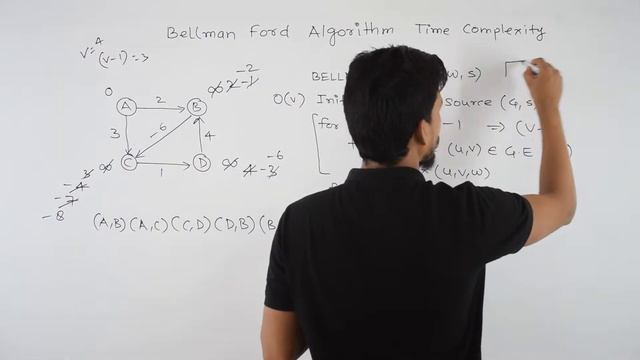 Bellman Ford Algorithm Time Complexity
V=4
(V-1) => 3
0
A
2
B
∞ 2 -1 -2
3
-6
4
C
1
D
3 ∞
-4
-7
-8
∞ 4 -3 -6
(A,B) (A,C) (C,D) (D,B) (B
BELL w, s)
O(V) Init Source (G, s
for -1 => (V-
(u,v) ∈ G.E )
(u,v,w)